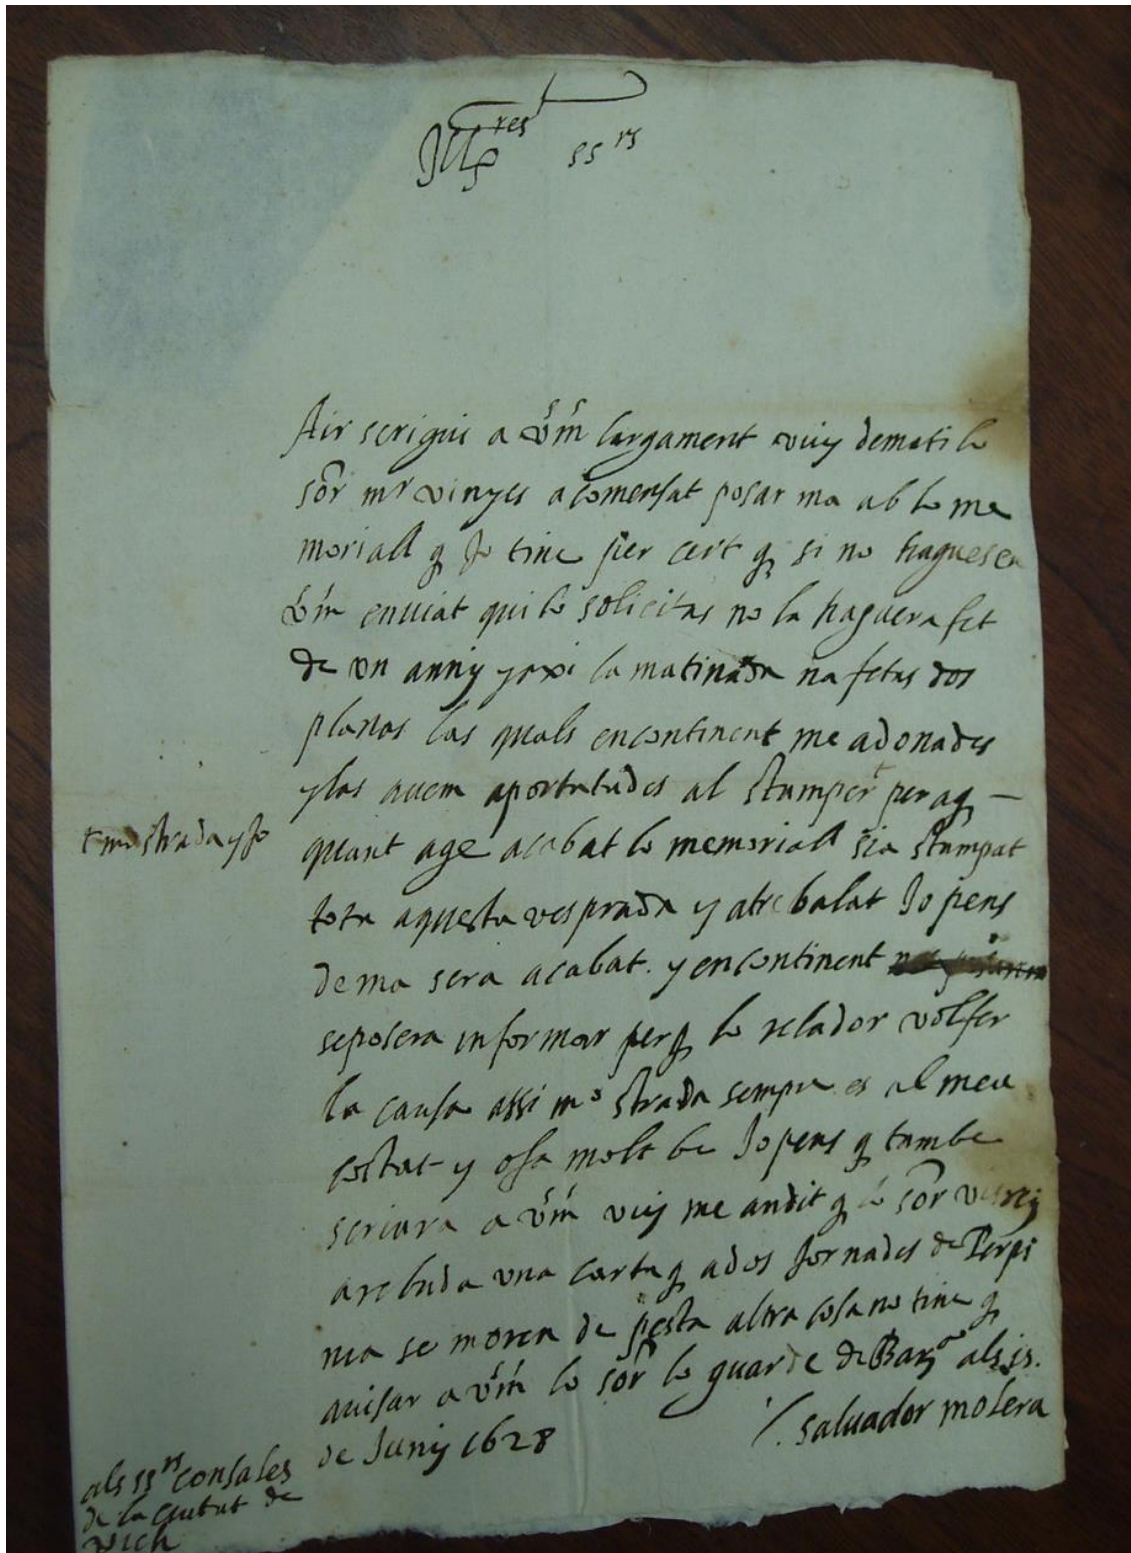 Illres ssrs
Air scrigui a vm largament vuy demati lo
sor mr vinyes a comensat posar ma ab lo me
moriall q Jo tinc per cert q si no haguesen
vm enviat qui lo solicitas no la haguera fet
de un anny y axi la matinada na fetas dos
planas las quals encontinent me a donades
y las avem aportatades al stamper per aq
mo strada y Jo
quant age acabat lo memoriall sia stampat
tota aquesta vesprada y a trebalat Jo pens
dema sera acabat. y encontinent
se posera informar perq lo relador vol fer
la causa assi mo strada sempre es al meu
costat y osa molt be Jo pens q tambe
scriura a vm vuy me an dit q lo sor virrey
a rebuda una carta q a dos Jornades de Perpi
nia se moren de pesta altra cosa no tinc q
avisar a vm lo sor lo guarde de Barna als
de Juny 1628
Salvador molera
als ssrs consales
de la ciutat de
vich